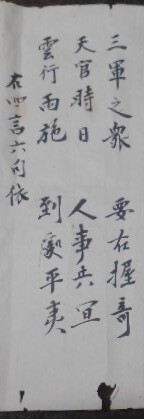 三軍之衆 要在握奇
天官時日 人事兵宜
雲行雨施 到處平夷
右四言六句依